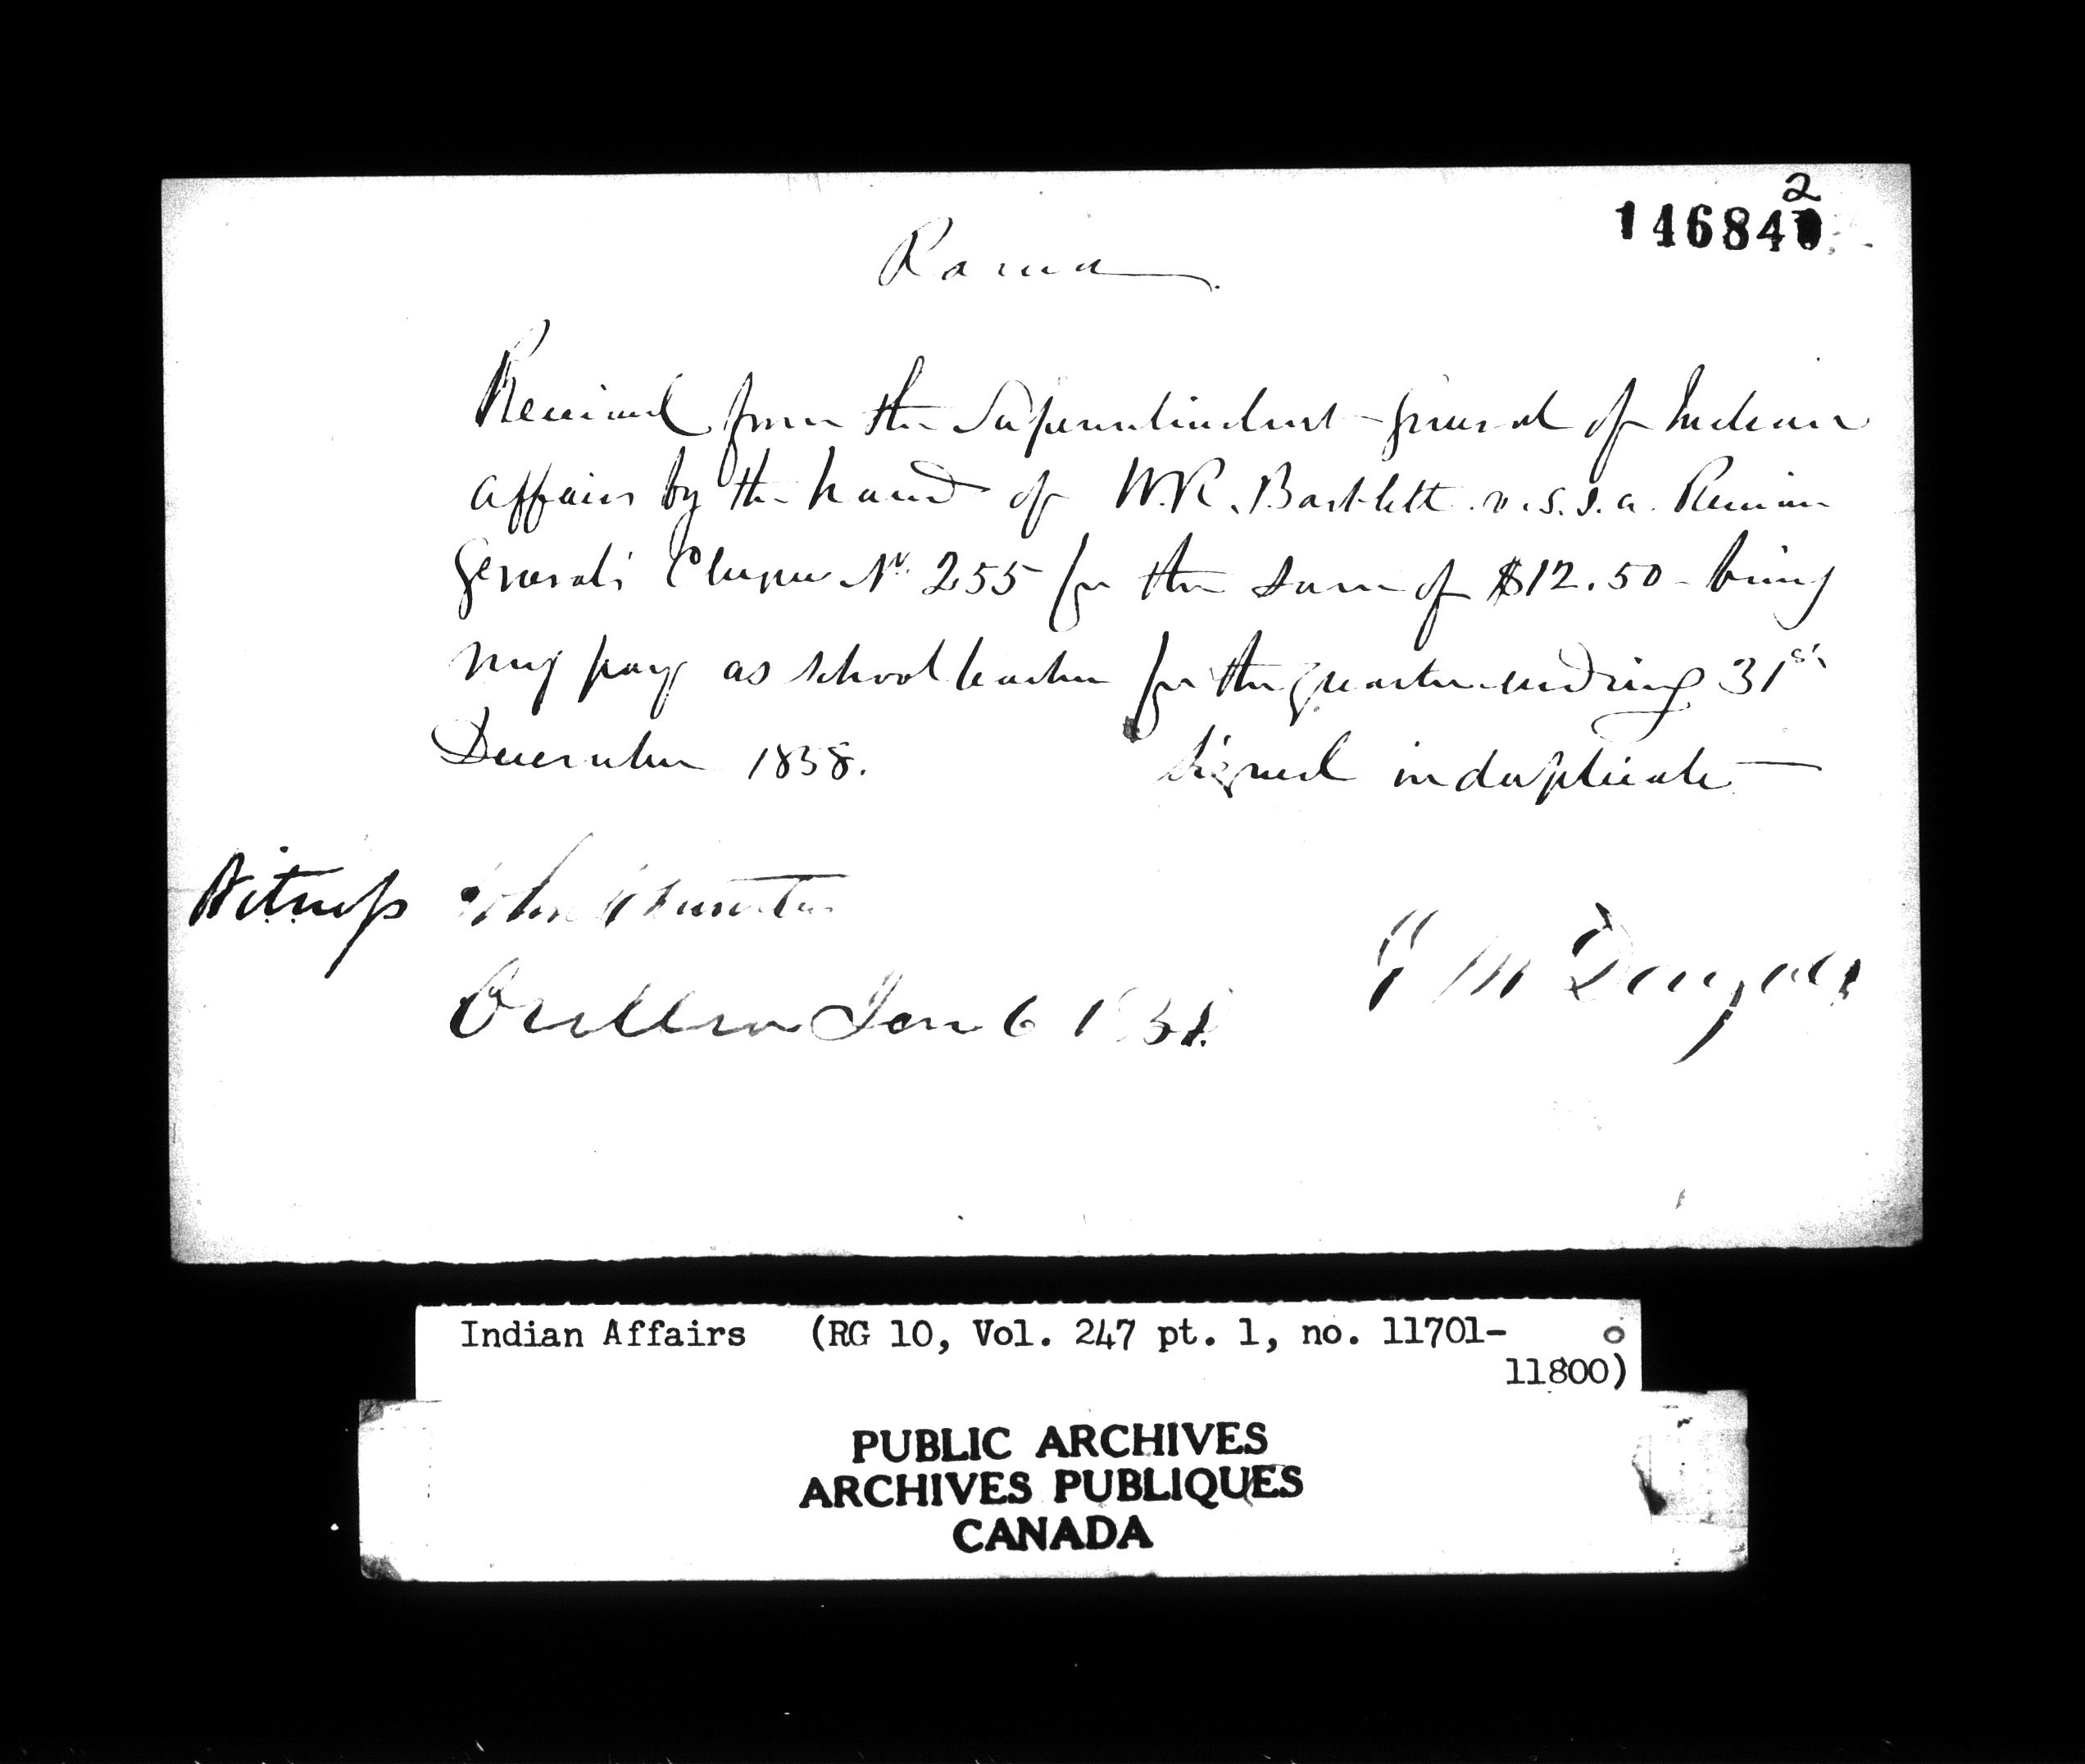 2
146840
Rama
Received from the Superintendent General of Indian
affairs by the hand of W.R. Bartlett v.s.I.a. Receiver
Generals Cheque No. 255 for the sum of $12.50 - being
my pay as school teacher for the quarter ending 31st
December 1858. Signed in duplicate
Witness John
Orillia Jan 6
G McDougall
Indian Affairs (RG 10, Vol. 247 pt. 1, no. 11701-
11800)
PUBLIC ARCHIVES
ARCHIVES PUBLIQUES
CANADA